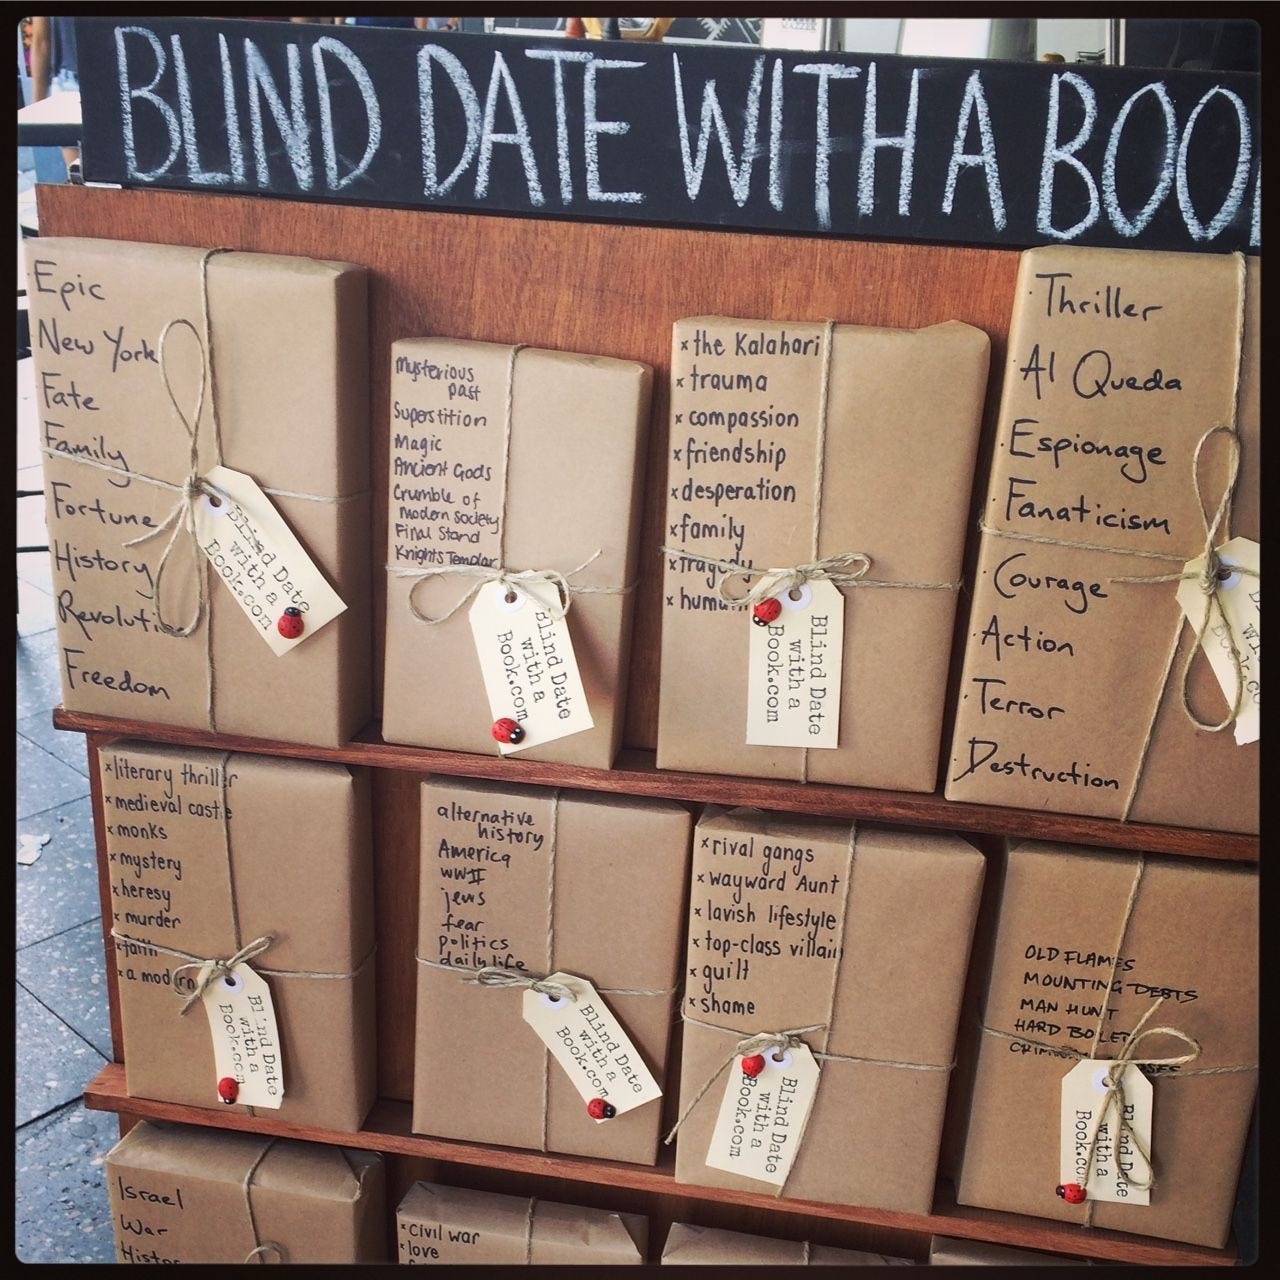 BLIND DATE WITH A BOO
Epic
New York
Fate
Family
Fortune
History
Freedom
Blind Date
with a
Book.com
Mysterious
past
Superstition
Magic
Ancient Gods
Crumble of
Modern Society
Final Stand
Knights Templar
Blind Date
with a
Book.com
× the Kalahari
× trauma
× compassion
× friendship
× desperation
× family
× tragedy
×
Blind Date
with a
Book.com
· Thriller
· Al Queda
· Espionage
· Fanaticism
· Courage
· Action
· Terror
· Destruction
× literary thriller
× medieval castle
× monks
× mystery
× heresy
× murder
× faith
× a modern
Blind Date
with a
Book.com
alternative
history
America
WWII
jews
fear
politics
daily life
Blind Date
with a
Book.com
× rival gangs
× wayward Aunt
× lavish lifestyle
× top-class villain
× guilt
× shame
Blind Date
with a
Book.com
OLD FLAMES
MOUNTING DEBTS
MAN HUNT
HARD BOILED
Blind Date
with a
Book.com
Israel
War
Histor
× Civil war
× love